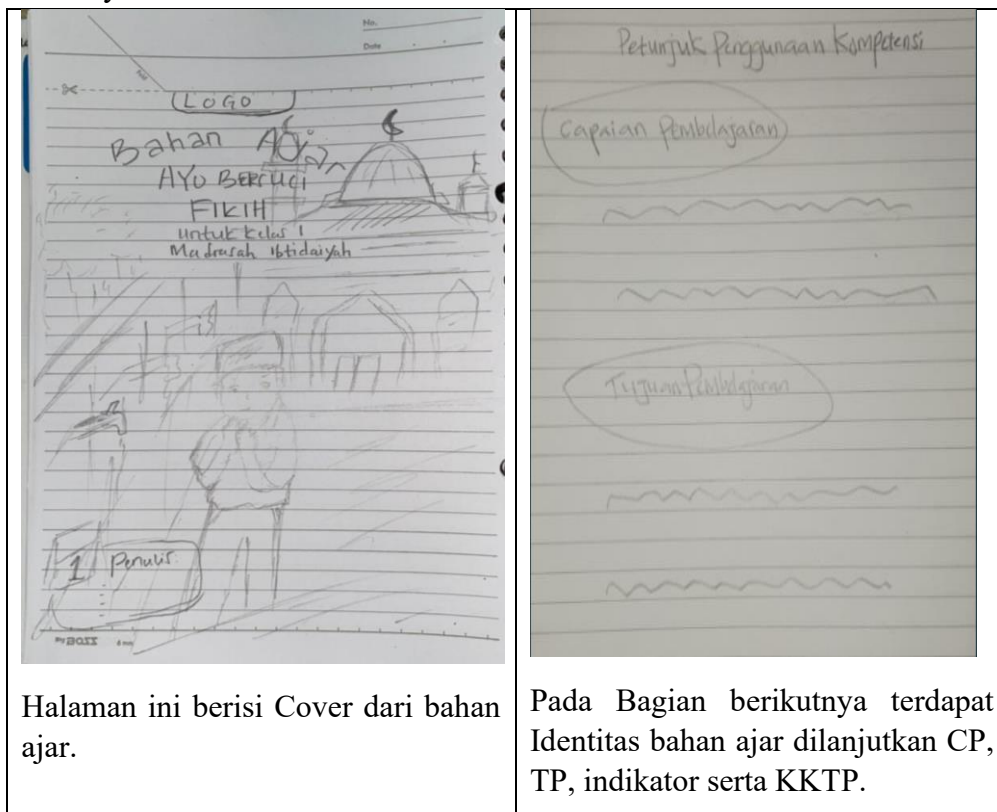 No.
Date
LOGO
Bahan
AYO BERSUCI
FIKIH
untuk kelas 1
Madrasah Ibtidaiyah
1 Penulis
my BOSS 6 mm
Halaman ini berisi Cover dari bahan
ajar.
Petunjuk Penggunaan Kompetensi
Capaian Pembelajaran
Tujuan Pembelajaran
Pada Bagian berikutnya terdapat
Identitas bahan ajar dilanjutkan CP,
TP, indikator serta KKTP.